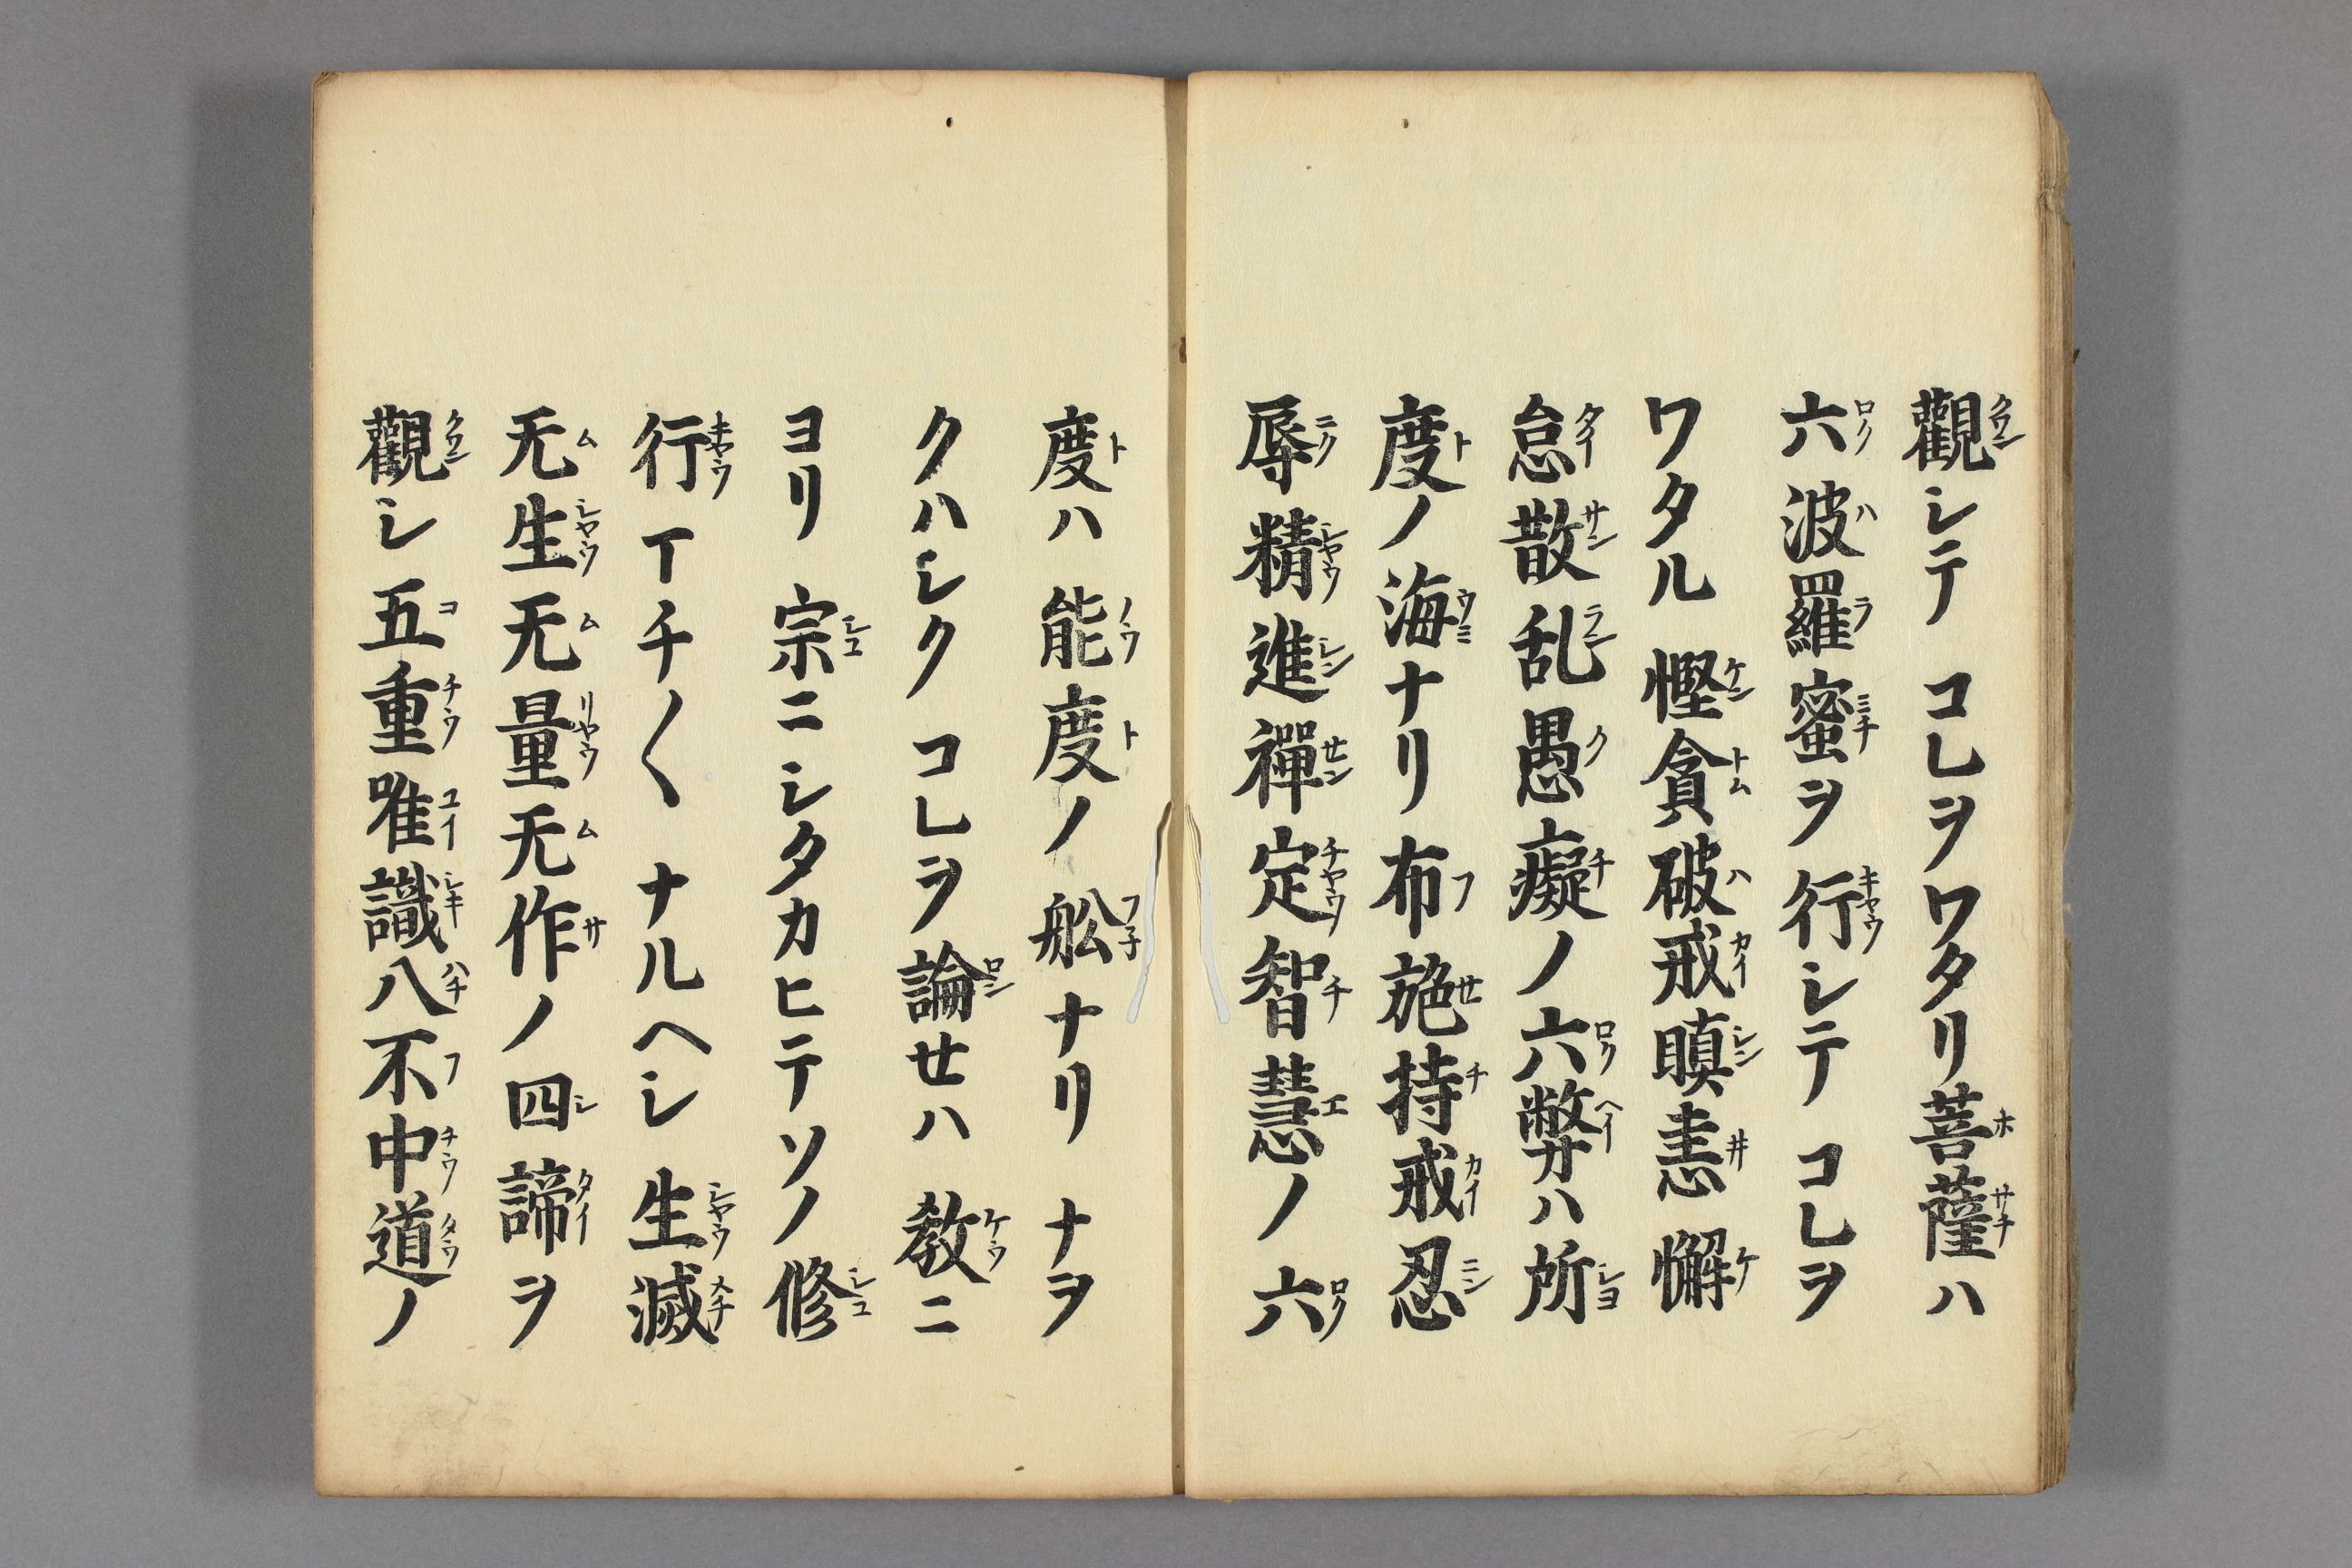 觀シテ コレヲ ワタリ 菩薩ハ
六波羅蜜ヲ 行シテ コレヲ
ワタル 慳貪破戒瞋恚懈
怠散乱愚癡ノ六弊ハ所
度ノ海ナリ 布施持戒忍
辱精進禪定智慧ノ六
度ハ 能度ノ舩ナリ ナヲ
クハシク コレヲ論セハ 教ニ
ヨリ 宗ニシタカヒテ ソノ修
行 一チ〱 ナルヘシ 生滅
无生无量无作ノ四諦ヲ
觀シ 五重唯識八不中道ノ